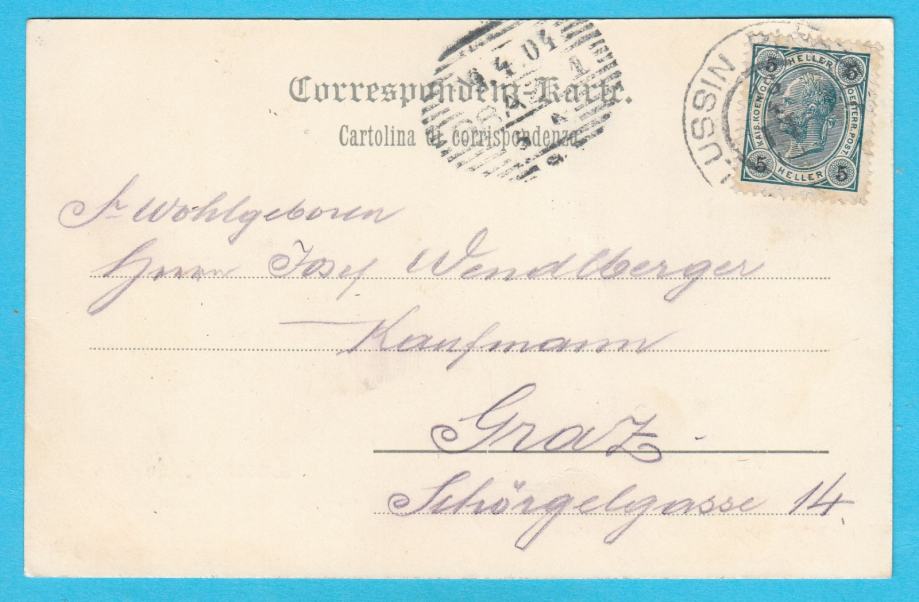 Correspondenz-Karte.
Cartolina di corrispondenza
4.04
LUSSIN
5 HELLER 5
KAIS. KOENIGL. OESTERR. POST.
5 HELLER 5
Sr Wohlgeboren
Herrn Josef Wendlberger
Kaufmann
Graz
Schörgelgasse 14